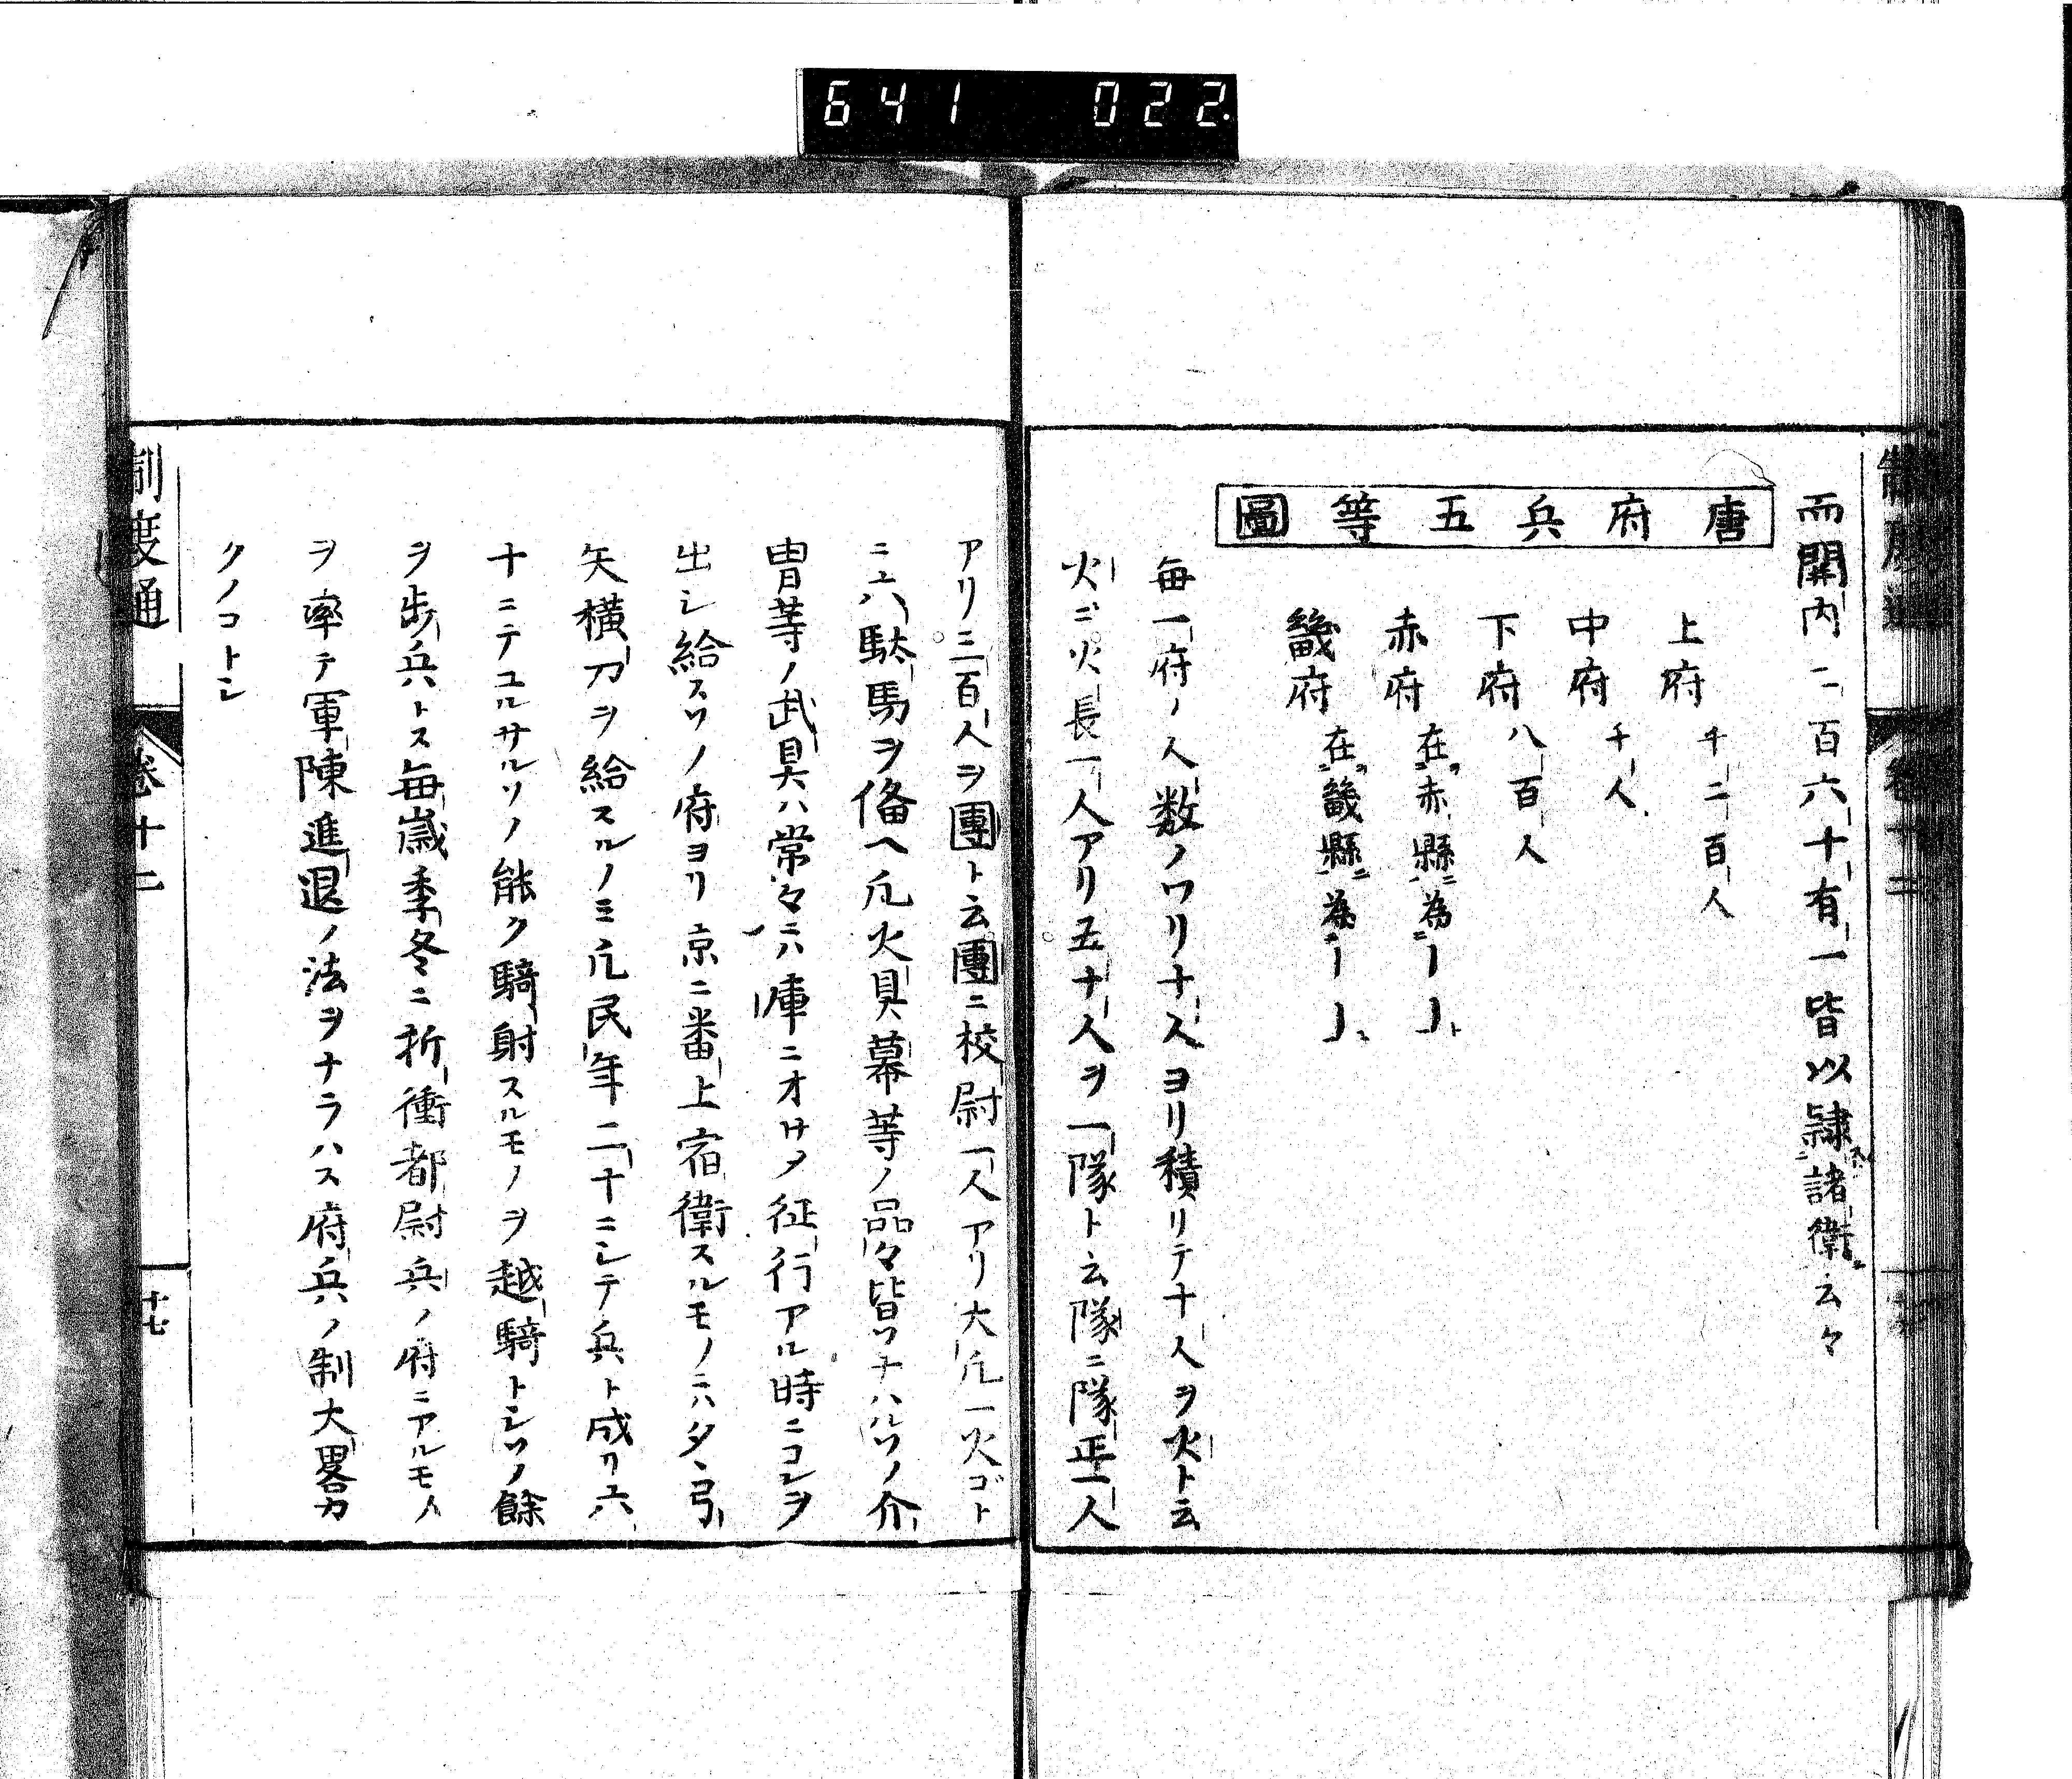 641 022
而關内二百六十有一皆以隷諸衛云々
唐府兵五等圖
上府 千二百人
中府 千人
下府 八百人
赤府 在赤縣為
畿府 在畿縣為
毎一府ノ人数ノワリ十人ヨリ積リテ十人ヲ火ト云
火ニ火長一人アリ五十人ヲ一隊ト云隊ニ隊正一人
アリ三百人ヲ團ト云團ニ校尉一人アリ大凡一火ゴト
ニ六駄馬ヲ備ヘ凡火具幕等ノ品々皆ソナハルソノ介
冑等ノ武具ハ常々ニハ庫ニオサメ征行アル時ニコレヲ
出シ給スソノ府ヨリ京ニ番上宿衛スルモノニハタヽ弓
矢横刀ヲ給スルノミ凡民年二十ニシテ兵ト成リ六
十ニテユルサルソノ能ク騎射スルモノヲ越騎トシソノ餘
ヲ歩兵トス毎歳季冬ニ折衝都尉兵ノ府ニアルモノ
ヲ率テ軍陳進退ノ法ヲナラハス府兵ノ制大畧カ
クノコトシ
制度通
卷十二
十七